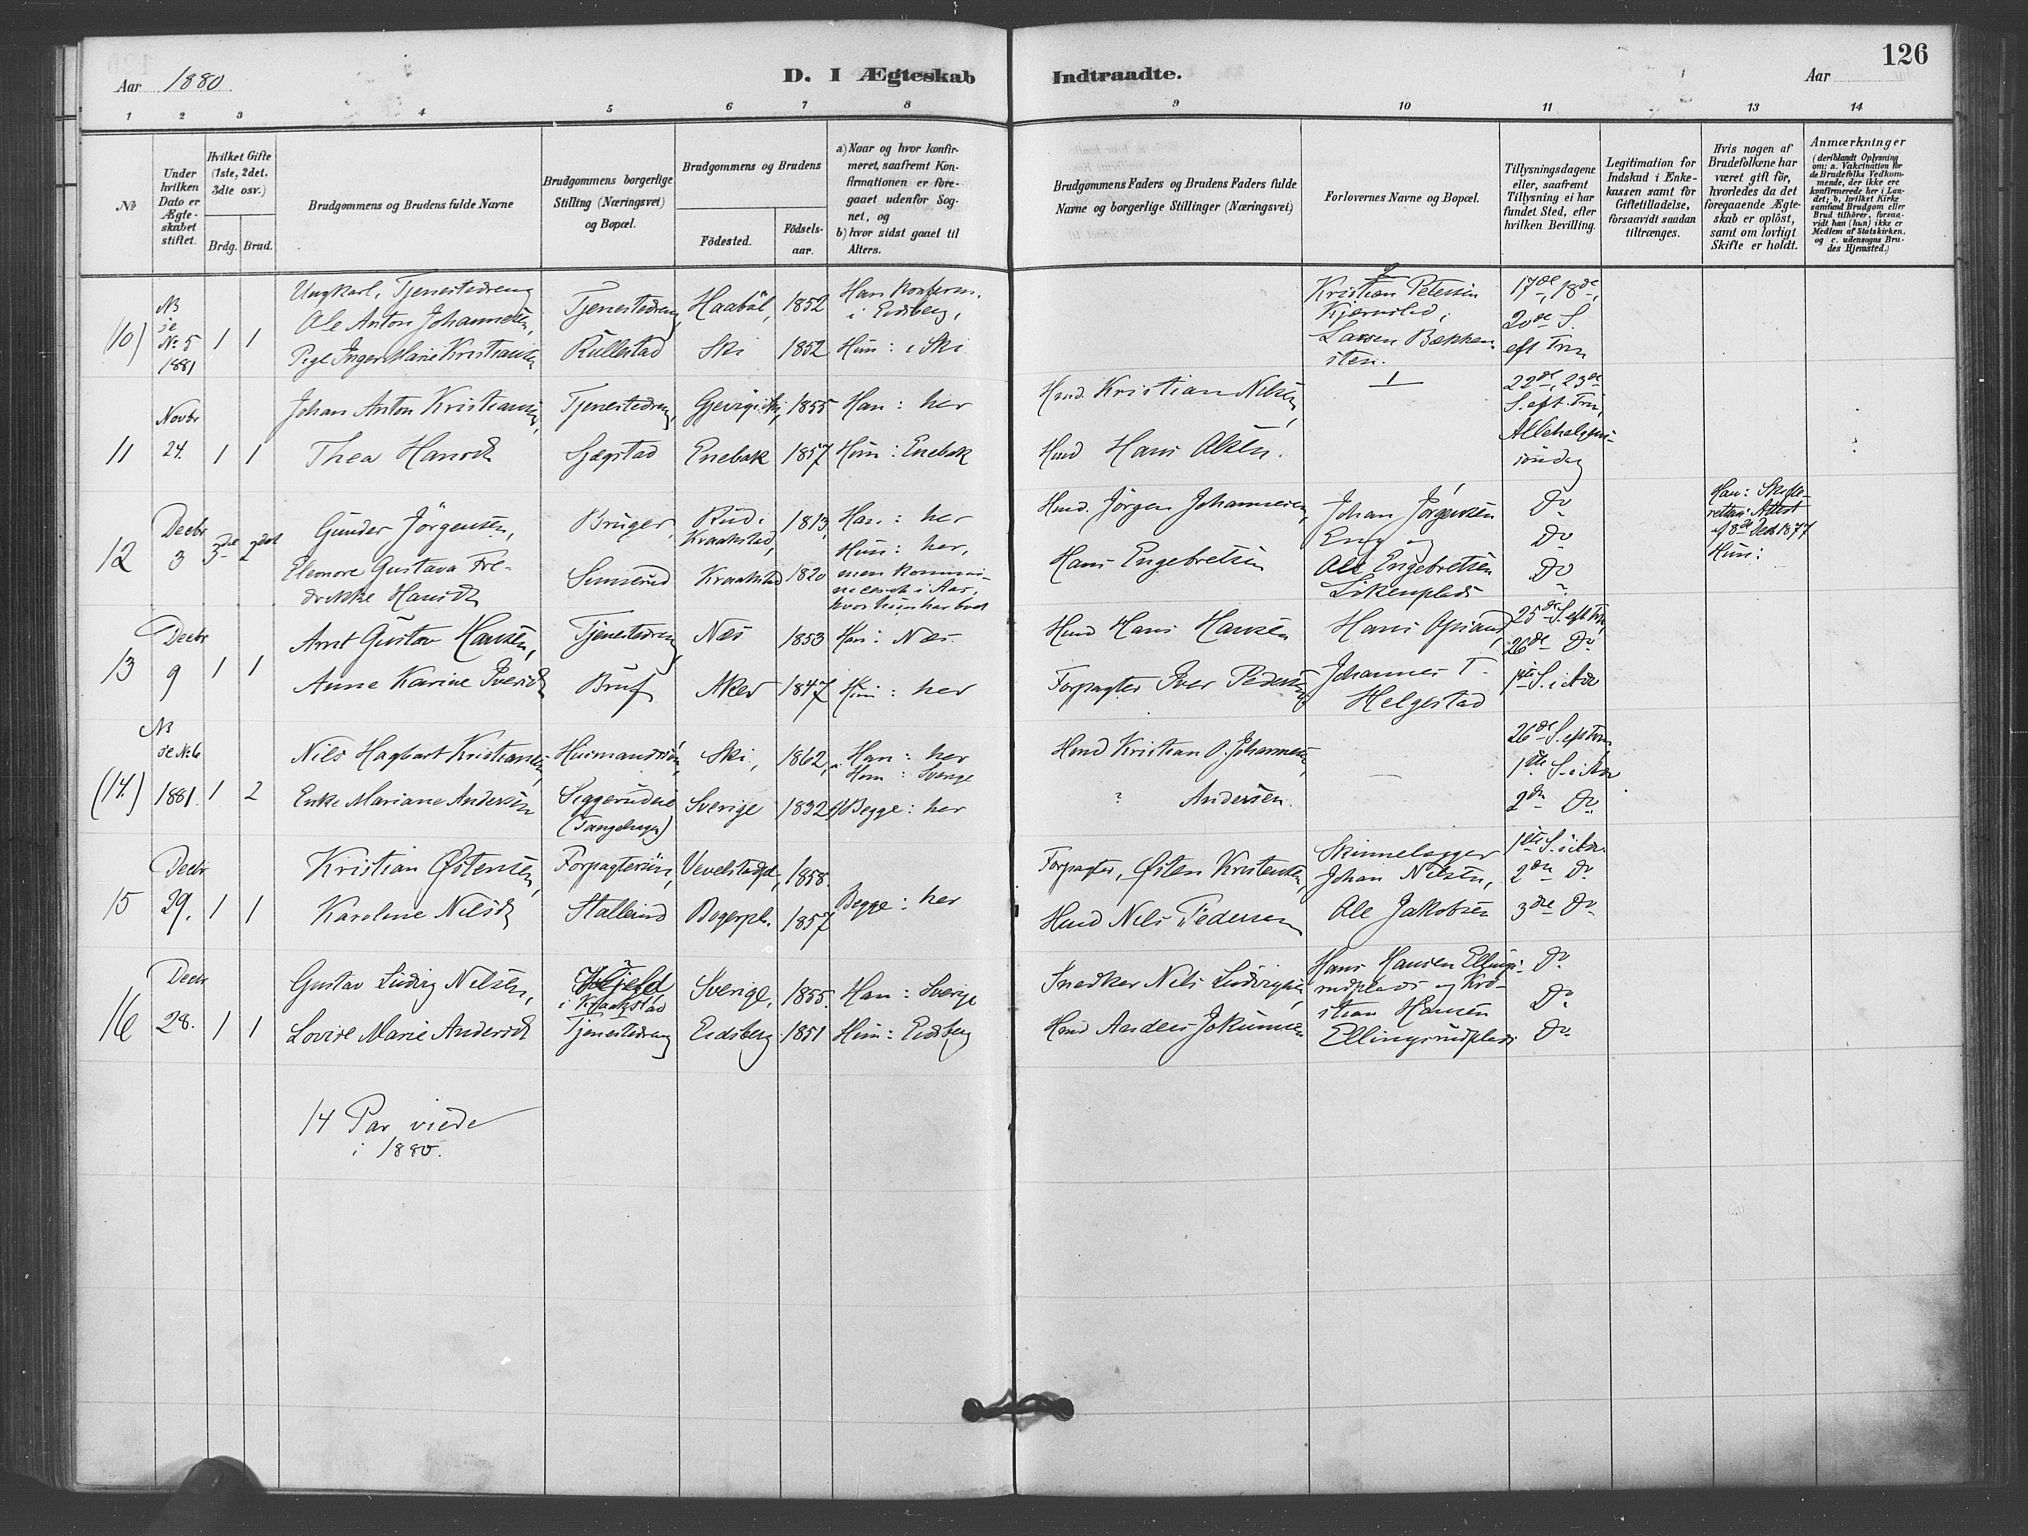 126
Aar 1880.
D. I Ægteskab Indtraadte.
Aar
1 2 3 4 5 6 7 8 9 10 11 13 14
No
Under hvilken Dato er Ægteskabet stiftet.
Hvilket Gifte (1ste, 2det, 3die osv.)
Brdg. Brud.
Brudgommens og Brudens fulde Navne
Brudgommens borgerlige Stilling (Næringsvei) og Bopæl.
Brudgommens og Brudens
Fødested. Fødsels-aar.
a) Naar og hvor konfirmeret, saafremt Konfirmationen er foregaaet udenfor Sognet, og
b) hvor sidst gaaet til Alters.
Brudgommens Faders og Brudens Faders fulde Navne og borgerlige Stillinger (Næringsvei)
Forlovernes Navne og Bopæl.
Tillysningsdagene eller, saafremt Tillysning ei har fundet Sted, efter hvilken Bevilling.
Legitimation for Indskud i Enkekassen samt for Giftetilladelse, forsaavidt saadan tiltrænges.
Hvis nogen af Brudefolkene har været gift før, hvorledes da det foregaaende Ægteskab er opløst, samt om lovligt Skifte er holdt.
Anmærkninger
(deriblandt Oplysning om: a. Vakcination for de Brudefolks Vedkommende, der ikke ere konfirmerede her i Landet; b. hvilket Kirkesamfund Brudgom eller Brud tilhører, forsaavidt han (hun) ikke er Medlem af Statskirken, og c. udensogns Brudes Hjemsted.)
(10) NB se No 5 1881 1 1
Ungkarl, Tjenestedreng
Ole Anton Johannesen,
Pige Inger Marie Kristians
Tjenestedreng, Haabøl, 1852 Han konferm. i Eidsberg,
Rullestad Ski 1852 Hun: i Ski
Kristian Petersen
Kjærnstad,
Larsen Bækken
sten.
17de, 18de,
20de S.
eft Trin
11 Novbr 24. 1 1
Johan Anton Kristiansen, Tjenestedreng, 1855 Han: her
Thea Hansdt Sjægstad Enebak 1857 Hun: Enebak
Hmd. Kristian Nilsen,
Hmd Hans Olsen.
22de, 23de
S. eft. Trin,
Allehelgens
søndag
12 Decbr 3 3de 2det
Gunder Jörgensen, Bruger, Rud i Kraakstad, 1813, Han: her
Eleonore Gustava Fre-
drikke Hansdt
Kraakstad 1820
Hun: her,
men kommuni-
ceret i Aas,
hvor hun har boet
Hmd. Jørgen Johannesen,
Hans Engebretsen
Johan Jørgensen
Eng og
Ole Engebretsen
Likenplads
Do
Do
Do
Han: Skifte-
rettens Attest
af 8de Decb 1877
Hun:
13 Decbr 9 1 1
Arnt Gustav Hansen, Tjenestedreng, Næs 1853 Han: Næs
Anne Karine Iversdt Aker 1847 Hun: her
Hmd Hans Hansen
Forpagter Iver Pedersen
Hans Opsand,
Johannes T.
Helgestad
25de S. eft Trin,
26de Do
1ste S. i Adv
(14.) NB se No 6 1881. 1 2
Nils Hagbart Kristiansen, Husmandssön, Ski, 1862, Han: her
Hun: Sverige
Enke Mariane Andersen Siggerudeie Sverige 1832 Begge: her
Hmd Kristian O. Johannesen,
? Andersen.
—
26de S. eft Trin
1ste S. i Adv
2den Do
15 Decbr 29. 1 1
Kristian Østensen, Forpagtersön, 1858.
Karoline Nilsdt Bogerpl. 1857 Begge: her
Forpagter, Østen Kristensen,
Hmd Nils Pedersen
Johan Nilsen,
Ole Jakobsen
1ste S. i Adv.
2den Do
3die Do
16 Decbr 28. 1 1
Gustav Ludvig Nilsen, i Kraakstad Sverige, 1855. Han: Sverige
Lovise Marie Andersdt Tjenestedreng Eidsberg 1851 Hun: Eidsberg
Snedker Nils Ludvigsen,
Hmd Anders Jokumsen
Hans Hansen Ellings-
rudplads og Kri-
stian Hansen
Ellingsrudplads
Do
Do
Do
14 Par viede
i 1880.